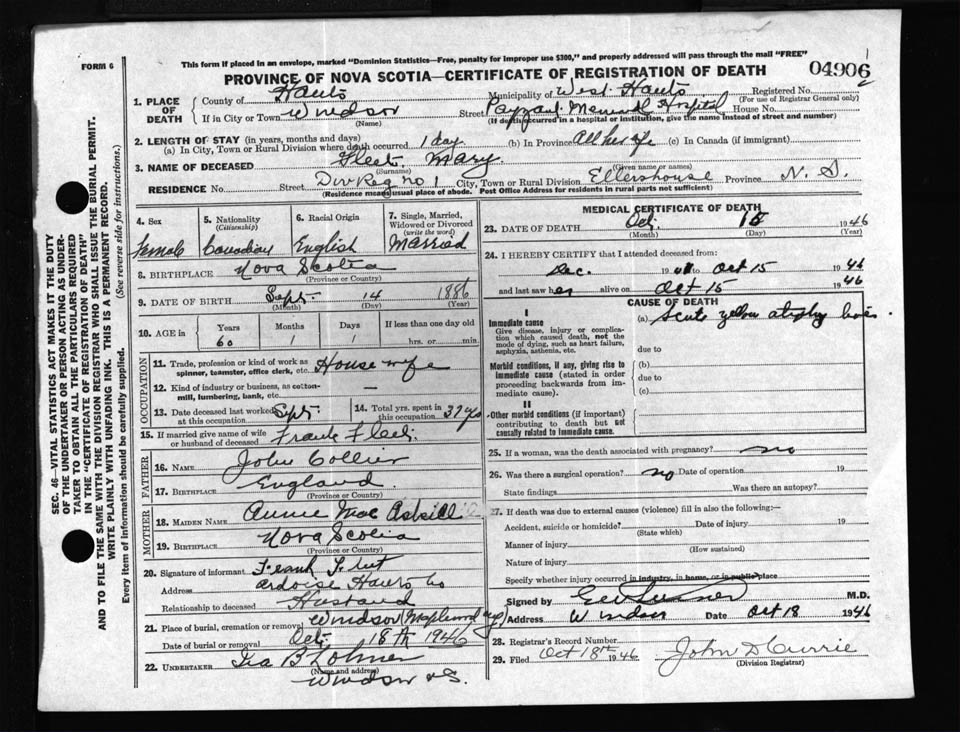 FORM 6
This form if placed in an envelope, marked "Dominion Statistics—Free, penalty for improper use $300," and properly addressed will pass through the mail "FREE"
PROVINCE OF NOVA SCOTIA—CERTIFICATE OF REGISTRATION OF DEATH
04906
1. PLACE OF DEATH
County of Hants Municipality of West Hants Registered No.
(For use of Registrar General only)
If in City or Town Windsor Street Payzant Memorial Hospital House No.
(Name) (If death occurred in a hospital or institution, give the name instead of street and number)
2. LENGTH OF STAY (in years, months and days)
(a) In City, Town or Rural Division where death occurred 1 day (b) In Province All her life (c) In Canada (if immigrant)
3. NAME OF DECEASED Fleet Mary
(Surname) (Given name or names)
RESIDENCE No. Street Div Reg no 1 City, Town or Rural Division Ellershouse Province N. S.
(Residence means usual place of abode. Post Office Address for residents in rural parts not sufficient)
4. Sex Female
5. Nationality (Citizenship) Canadian
6. Racial Origin English
7. Single, Married, Widowed or Divorced (write the word) Married
8. BIRTHPLACE Nova Scotia
(Province or Country)
9. DATE OF BIRTH Sept 14 1886
(Month) (Day) (Year)
10. AGE in Years Months Days If less than one day old
60 1 1 hrs. or min.
OCCUPATION
11. Trade, profession or kind of work as spinner, teamster, office clerk, etc. House wife
12. Kind of industry or business, as cotton-mill, lumbering, bank, etc. —
13. Date deceased last worked at this occupation Sept
14. Total yrs. spent in this occupation 37 yrs
15. If married give name of wife or husband of deceased Frank Fleet
FATHER
16. NAME John Collier
17. BIRTHPLACE England
(Province or Country)
MOTHER
18. MAIDEN NAME Annie Mac Askill
19. BIRTHPLACE Nova Scotia
(Province or Country)
20. Signature of informant Frank Fleet
Address Ardoise Hants Co
Relationship to deceased Husband
21. Place of burial, cremation or removal Windsor (Maplewood
Date of burial or removal Oct 18th 1946
22. UNDERTAKER Ira B Lohnes
(Name and address)
Windsor N.S.
MEDICAL CERTIFICATE OF DEATH
23. DATE OF DEATH Oct 15 1946
(Month) (Day) (Year)
24. I HEREBY CERTIFY that I attended deceased from:
Dec. 19 to Oct 15 1946
and last saw her alive on Oct 15 1946
CAUSE OF DEATH
I
Immediate cause
Give disease, injury or complication which caused death, not the mode of dying, such as heart failure, asphyxia, asthenia, etc.
(a) Acute yellow atrophy liver
due to
Morbid conditions, if any, giving rise to immediate cause (stated in order proceeding backwards from immediate cause).
(b)
due to
(c)
II
Other morbid conditions (if important) contributing to death but not causally related to immediate cause.
25. If a woman, was the death associated with pregnancy? no
26. Was there a surgical operation? no Date of operation 19
State findings Was there an autopsy?
27. If death was due to external causes (violence) fill in also the following:—
Accident, suicide or homicide? Date of injury 19
(State which)
Manner of injury
(How sustained)
Nature of injury
Specify whether injury occurred in industry, in home, or in public place
Signed by M.D.
Address Windsor Date Oct 18 1946
28. Registrar's Record Number
29. Filed Oct 18th 1946 John D Currie
(Division Registrar)
SEC. 46—VITAL STATISTICS ACT MAKES IT THE DUTY
OF THE UNDERTAKER OR PERSON ACTING AS UNDER-
TAKER TO OBTAIN ALL THE PARTICULARS REQUIRED
IN THE "CERTIFICATE OF REGISTRATION OF DEATH"
AND TO FILE THE SAME WITH THE DIVISION REGISTRAR WHO SHALL ISSUE THE BURIAL PERMIT.
WRITE PLAINLY WITH UNFADING INK. THIS IS A PERMANENT RECORD.
Every item of information should be carefully supplied. (See reverse side for instructions.)